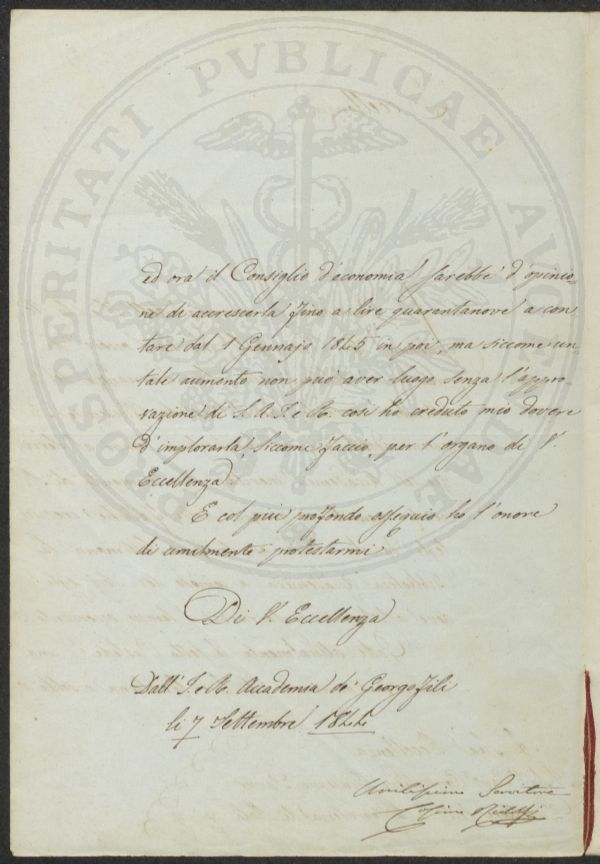 PROSPERITATI PVBLICAE AVGENDAE
ed ora il Consiglio d'economia sarebbe d'opinio-
ne di accrescerla fino a lire quarantanove a con
tare dal 1 Gennajo 1845 in poi, ma siccome un
tale aumento non può aver luogo senza l'appro-
vazione di S. A. I. e R. così ho creduto mio dovere
d'implorarla, siccome faccio, per l'organo di V.
Eccellenza.
E col più profondo ossequio ho l'onore
di umilmente protestarmi
Di V. Eccellenza
Dall' I. e R. Accademia de' Georgofili
li 7 Settembre 1844
Umilissimo Servitore
Cosimo Ridolfi